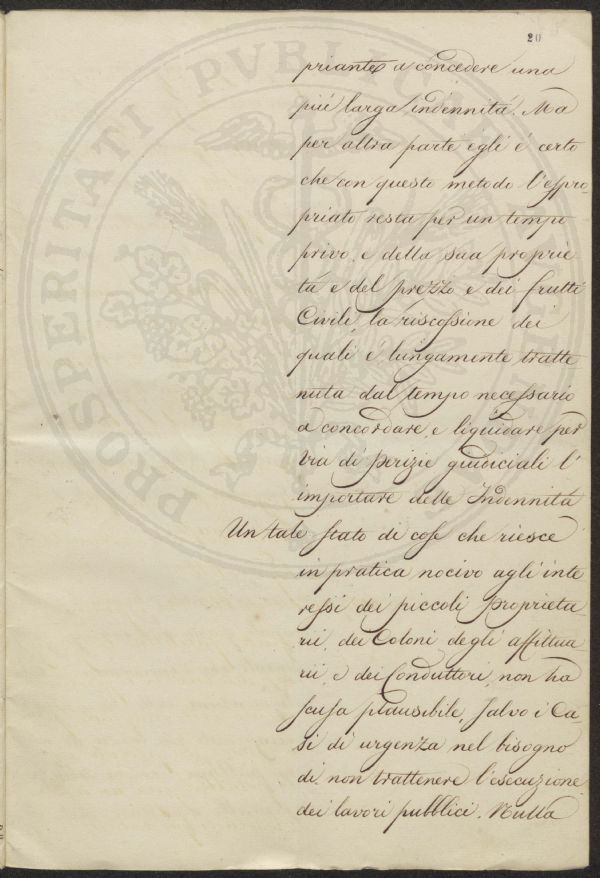 20
priante a concedere una
più larga indennità. Ma
per altra parte egli è certo
che con questo metodo l'espro-
priato resta per un tempo
privo, e della sua proprie
tà e del prezzo e dei frutti
Civili, la riscossione dei
quali è lungamente tratte
nuta dal tempo necessario
a concordare, e liquidare per
via di perizie giudiciali l'
importare delle Indennità
Un tale stato di cose che riesce
in pratica nocivo agli inte
ressi dei piccoli Proprieta
rii, dei Coloni degli affittua
rii, e dei Conduttori, non ha
scusa plausibile, salvo i Ca-
si di urgenza nel bisogno
di non trattenere l'esecuzione
dei lavori pubblici. Nulla
PROSPERITATI PVBLICAE